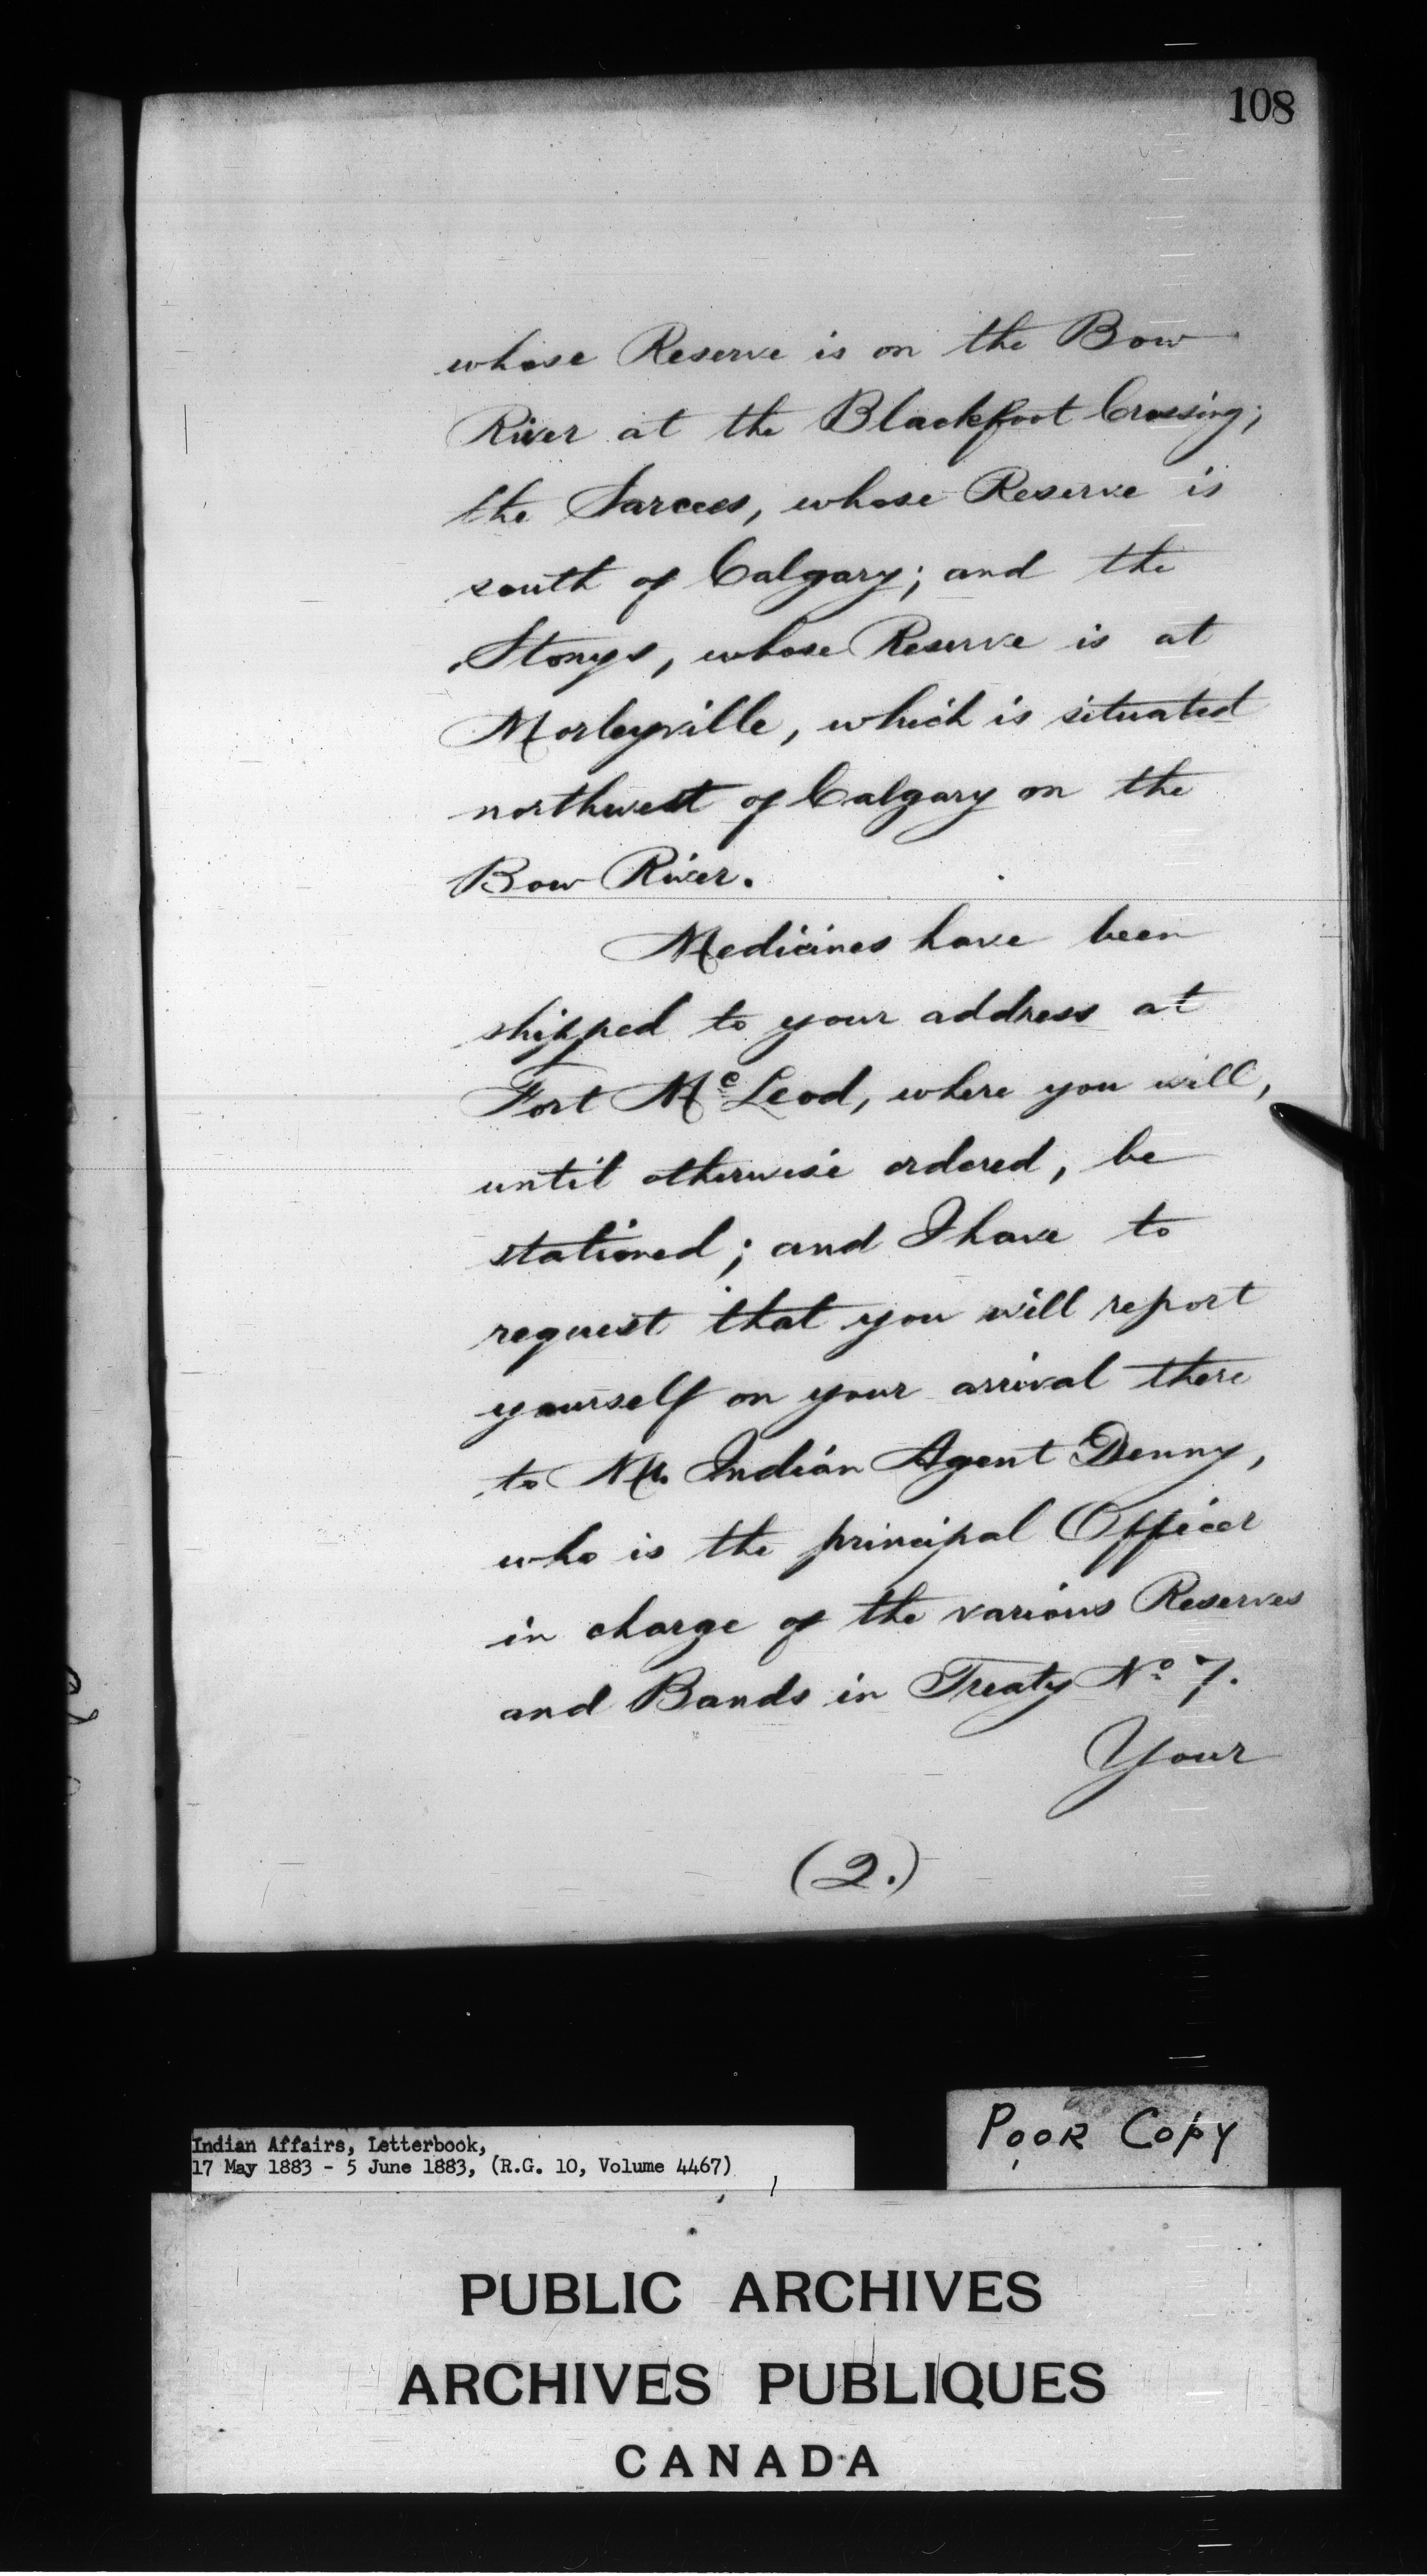 108
whose Reserve is on the Bow
River at the Blackfoot Crossing;
the Sarcees, whose Reserve is
south of Calgary; and the
Stonys, whose Reserve is at
Morleyville, which is situated
northwest of Calgary on the
Bow River.
Medicines have been
shipped to your address at
Fort McLeod, where you will,
until otherwise ordered, be
stationed; and I have to
request that you will report
yourself on your arrival there
to Mr. Indian Agent Denny,
who is the principal Officer
in charge of the various Reserves
and Bands in Treaty No 7.
Your
(2.)
POOR COPY
Indian Affairs, Letterbook,
17 May 1883 - 5 June 1883, (R.G. 10, Volume 4467)
PUBLIC ARCHIVES
ARCHIVES PUBLIQUES
CANADA